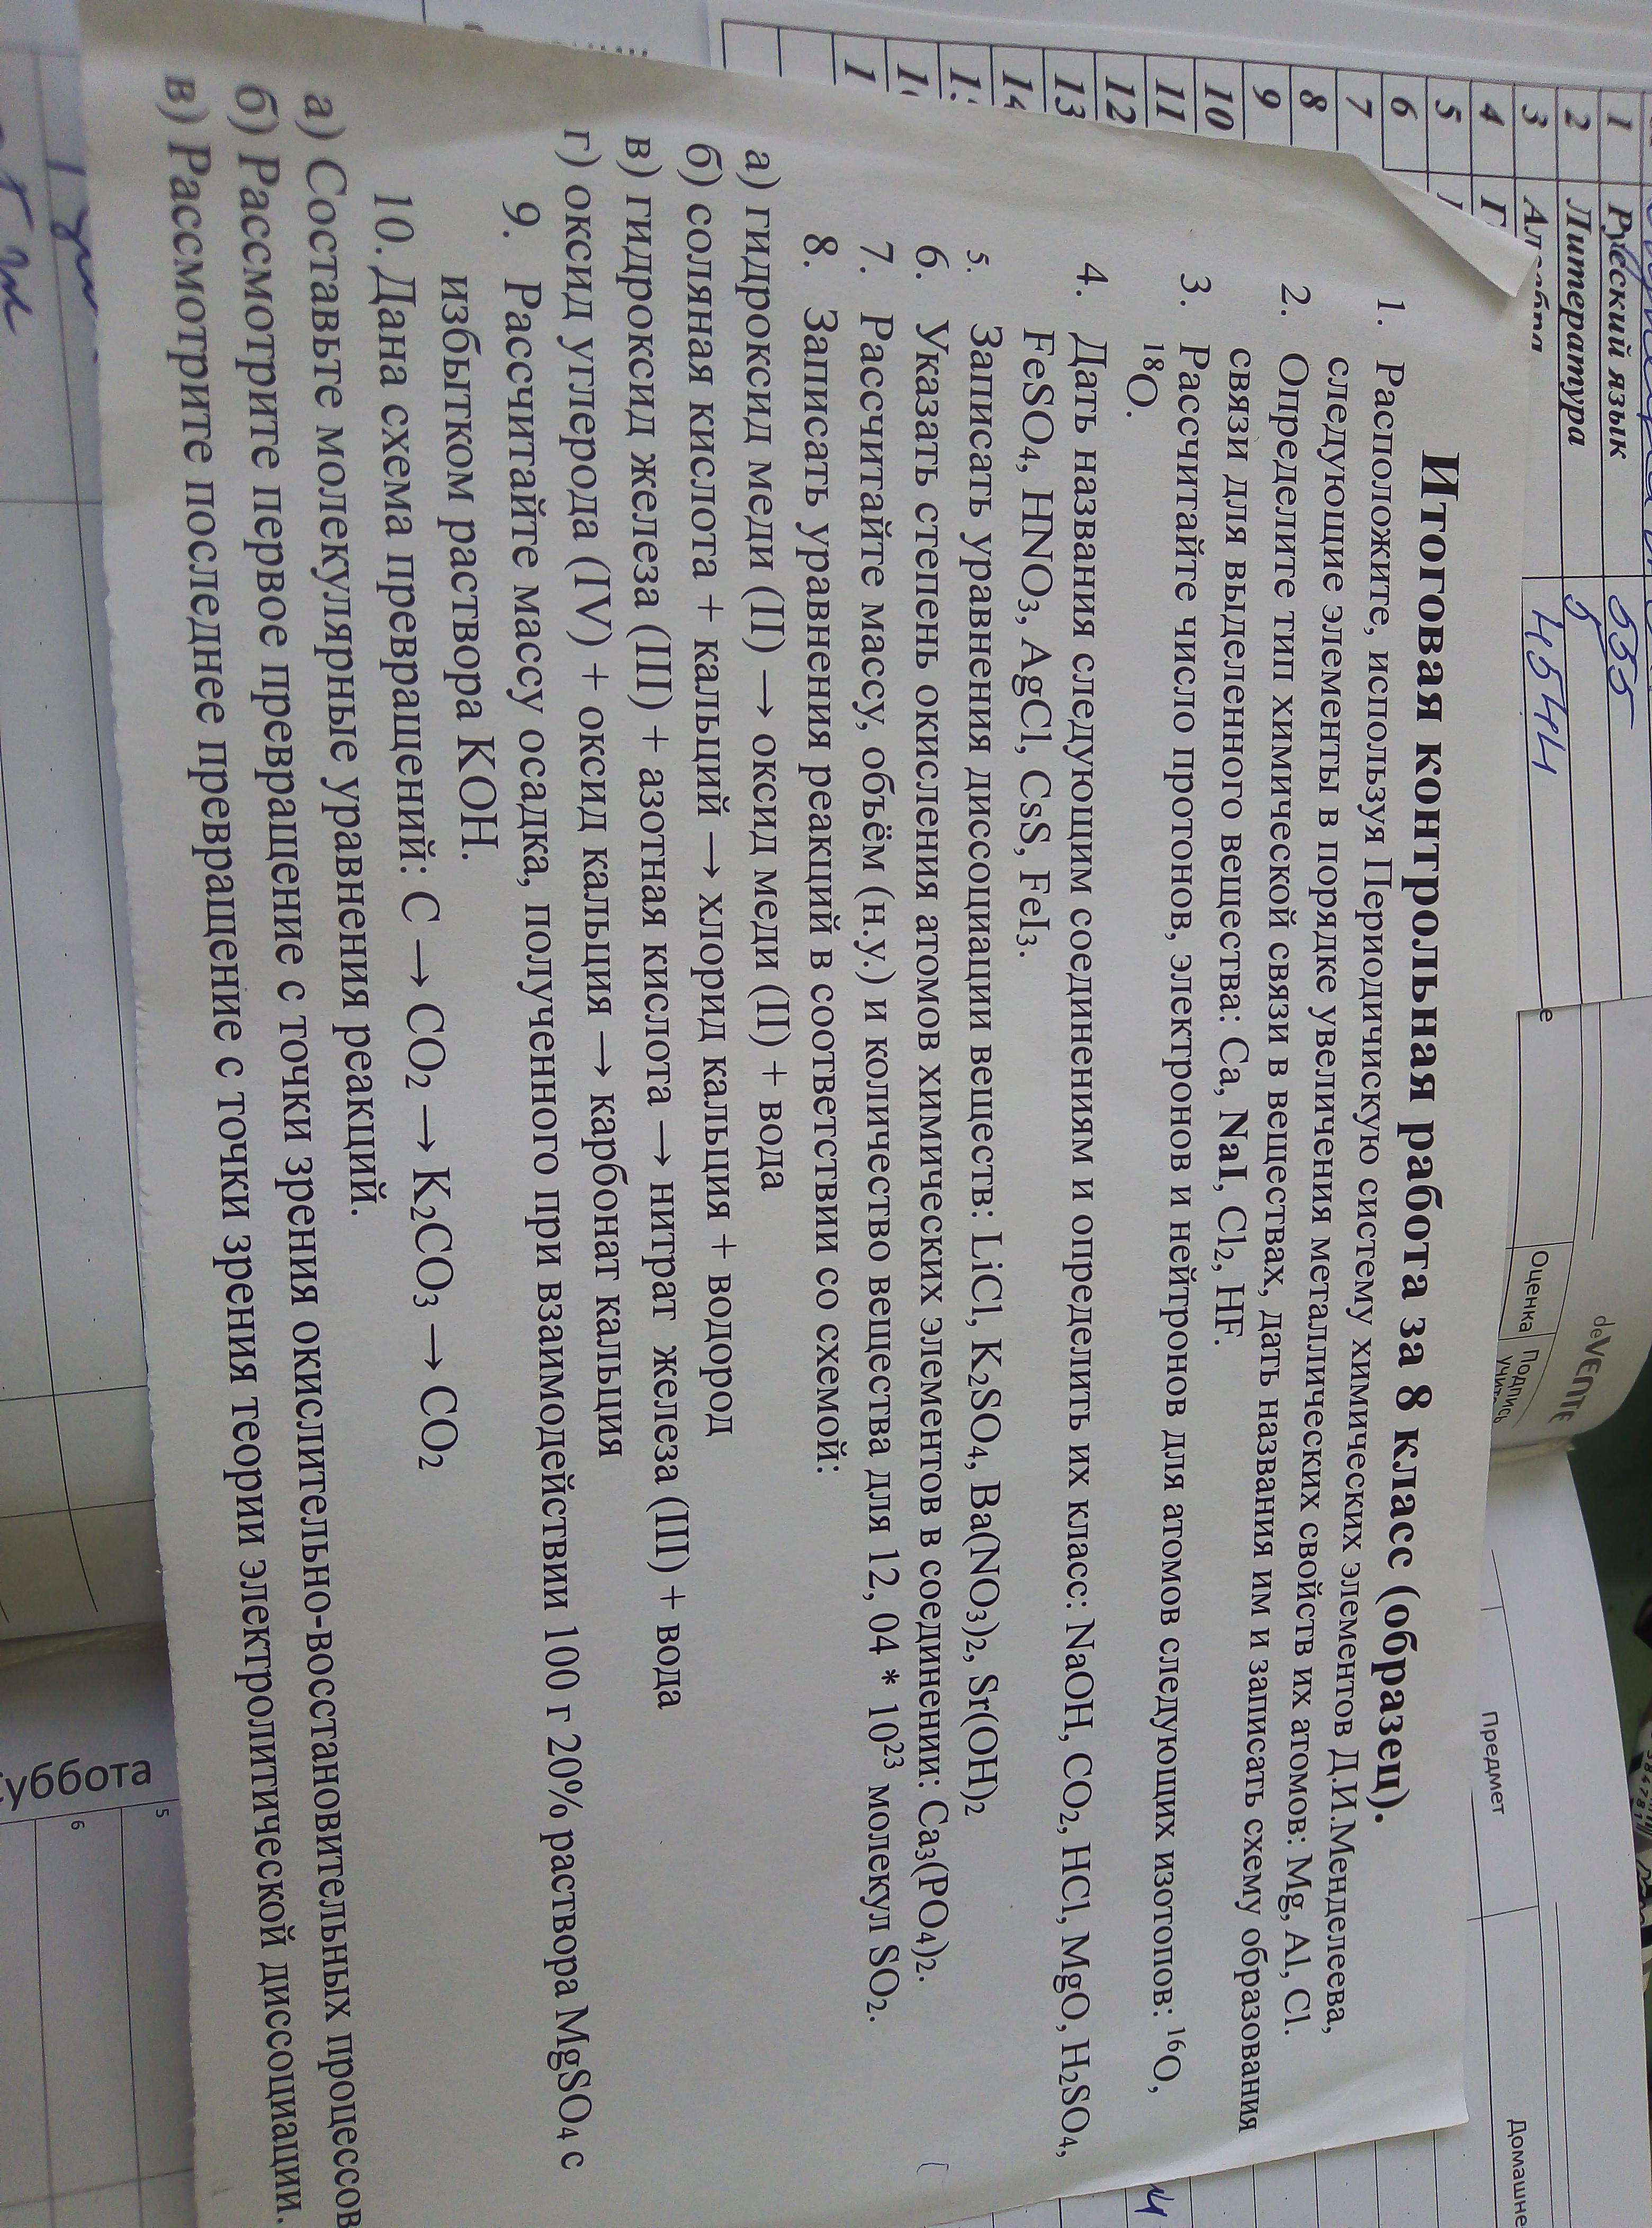 Итоговая контрольная работа за 8 класс (образец).
1. Расположите, используя Периодичискую систему химических элементов Д.И.Менделеева,
следующие элементы в порядке увеличения металлических свойств их атомов: Mg, Al, Cl.
2. Определите тип химической связи в веществах, дать названия им и записать схему образования
связи для выделенного вещества: Ca, NaI, Cl₂, HF.
3. Рассчитайте число протонов, электронов и нейтронов для атомов следующих изотопов: ¹⁶O,
¹⁸O.
4. Дать названия следующим соединениям и определить их класс: NaOH, CO₂, HCl, MgO, H₂SO₄,
FeSO₄, HNO₃, AgCl, CsS, FeI₃.
5. Записать уравнения диссоциации веществ: LiCl, K₂SO₄, Ba(NO₃)₂, Sr(OH)₂
6. Указать степень окисления атомов химических элементов в соединении: Ca₃(PO₄)₂.
7. Рассчитайте массу, объём (н.у.) и количество вещества для 12, 04 * 10²³ молекул SO₂.
8. Записать уравнения реакций в соответствии со схемой:
а) гидроксид меди (II) → оксид меди (II) + вода
б) соляная кислота + кальций → хлорид кальция + водород
в) гидроксид железа (III) + азотная кислота → нитрат железа (III) + вода
г) оксид углерода (IV) + оксид кальция → карбонат кальция
9. Рассчитайте массу осадка, полученного при взаимодействии 100 г 20% раствора MgSO₄ с
избытком раствора KOH.
10. Дана схема превращений: C → CO₂ → K₂CO₃ → CO₂
а) Составьте молекулярные уравнения реакций.
б) Рассмотрите первое превращение с точки зрения окислительно-восстановительных процессов
в) Рассмотрите последнее превращение с точки зрения теории электролитической диссоциации.
1 Русский язык 555
2 Литература 5
3 4544
4
5
6
7
8
9
10
11
12
13
Оценка
Подпись
deVENTE
Предмет
Домашне
уббота
5
6